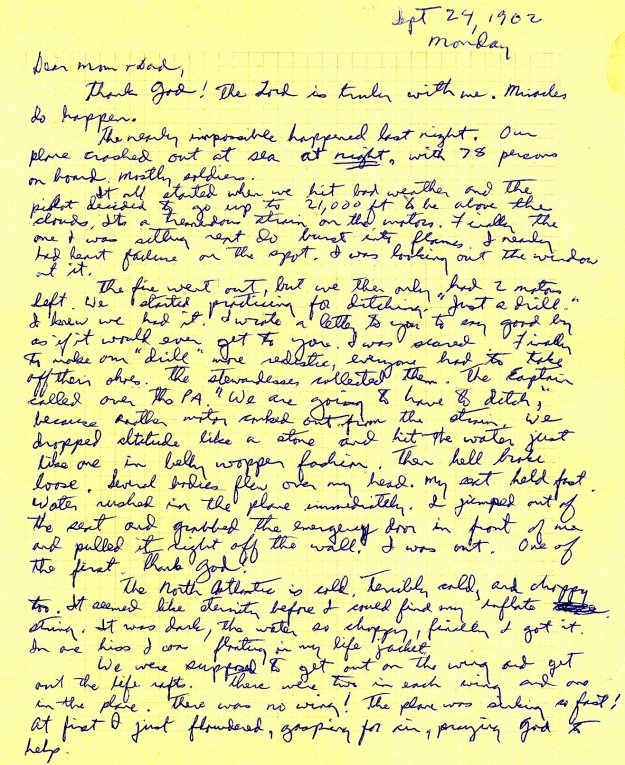 Sept 24, 1902
Monday
Dear Mom & Dad,
Thank God! The Lord is truly with me. Miracles
do happen.
The nearly impossible happened last night. Our
plane crashed out at sea at night, with 78 persons
on board. Mostly soldiers.
It all started when we hit bad weather and the
pilot decided to go up to 21,000 ft to be above the
clouds. Its a tremendous strain on the motors. Finally the
one I was sitting next to burst into flames. I nearly
had heart failure on the spot. I was looking out the window
at it.
The fire went out, but we then only had 2 motors
left. We started practicing for ditching, "Just a drill."
I knew we had it. I wrote a letter to you to say good by
as if it would ever get to you. I was scared. Finally
to make our "drill" more realistic, everyone had to take
off their shoes. The stewardesses collected them. The Captain
called over the PA. "We are going to have to ditch,"
because another motor conked out from the strain. We
dropped altitude like a stone and hit the water just
like one in belly wopper fashion. Then hell broke
loose. Several bodies flew over my head. My seat held fast.
Water rushed in the plane immediately. I jumped out of
the seat and grabbed the emergency door in front of me
and pulled it right off the wall. I was out. One of
the first, thank God!
The North Atlantic is cold, terribly cold, and choppy
too. It seemed like eternity before I could find my inflate
string. It was dark, the water so choppy, finally I got it.
In one hiss I was floating in my life jacket.
We were supposed to get out on the wing and get
out the life rafts. There were two in each wing and one
in the plane. There was no wing! The plane was sinking so fast!
At first I just floundered, gasping for air, praying God to
help.